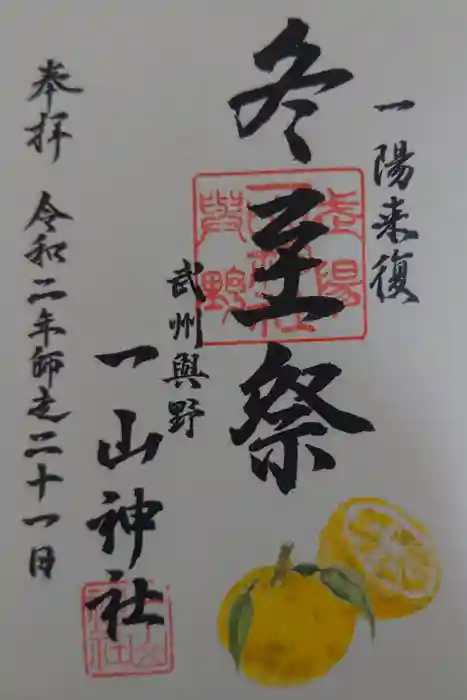 一陽来復
冬至祭
武州與野
一山神社
奉拝 令和二年師走二十一日